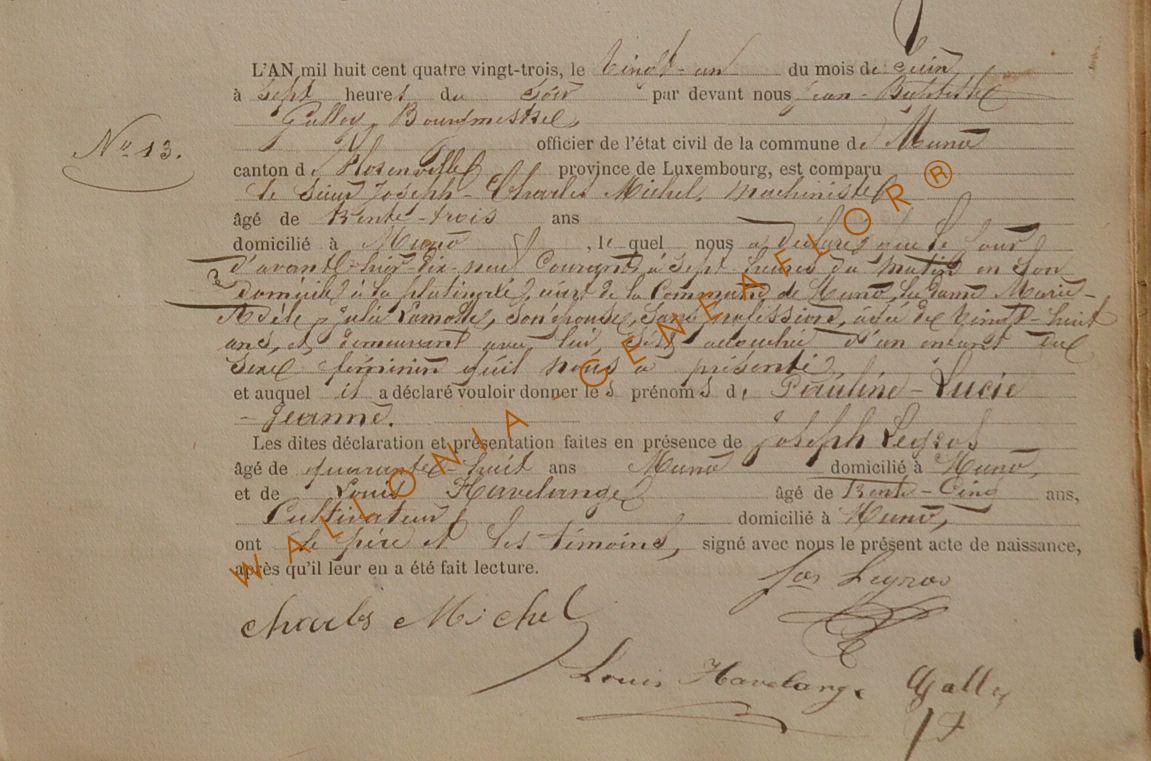 L'AN mil huit cent quatre vingt-trois, le Vingt-un du mois de Juin,
à Sept heures du Soir par devant nous Jean-Baptiste
Galley, Bourgmestre,
officier de l'état civil de la commune de Muno
N° 13.
canton de Florenville province de Luxembourg, est comparu
le Sieur Joseph-Charles Michel, machiniste
âgé de trente-trois ans
domicilié à Muno, le quel nous a déclaré que le jour
d'avant-hier dix-neuf Courant, à Sept heures du matin en Son
domicile à la platinerie, de la Commune de Muno, la dame Marie-
Adèle-Julie Lamotte, Son épouse, Sans profession, âgée de Vingt-huit
ans, et demeurant avec lui, est accouchée d'un enfant du
Sexe féminin qu'il nous a présenté
et auquel il a déclaré vouloir donner les prénoms de Pauline-Lucie
-Jeanne.
Les dites déclaration et présentation faites en présence de Joseph Legros
âgé de quarante-huit ans Muno domicilié à Muno,
et de Louis Havelange âgé de trente-Cinq ans,
Cultivateur domicilié à Muno,
ont le père et les témoins, signé avec nous le présent acte de naissance,
après qu'il leur en a été fait lecture.
Jos Legros
Charles Michel
Louis Havelange Galley
WALLONIA - GENEAFLOR ®